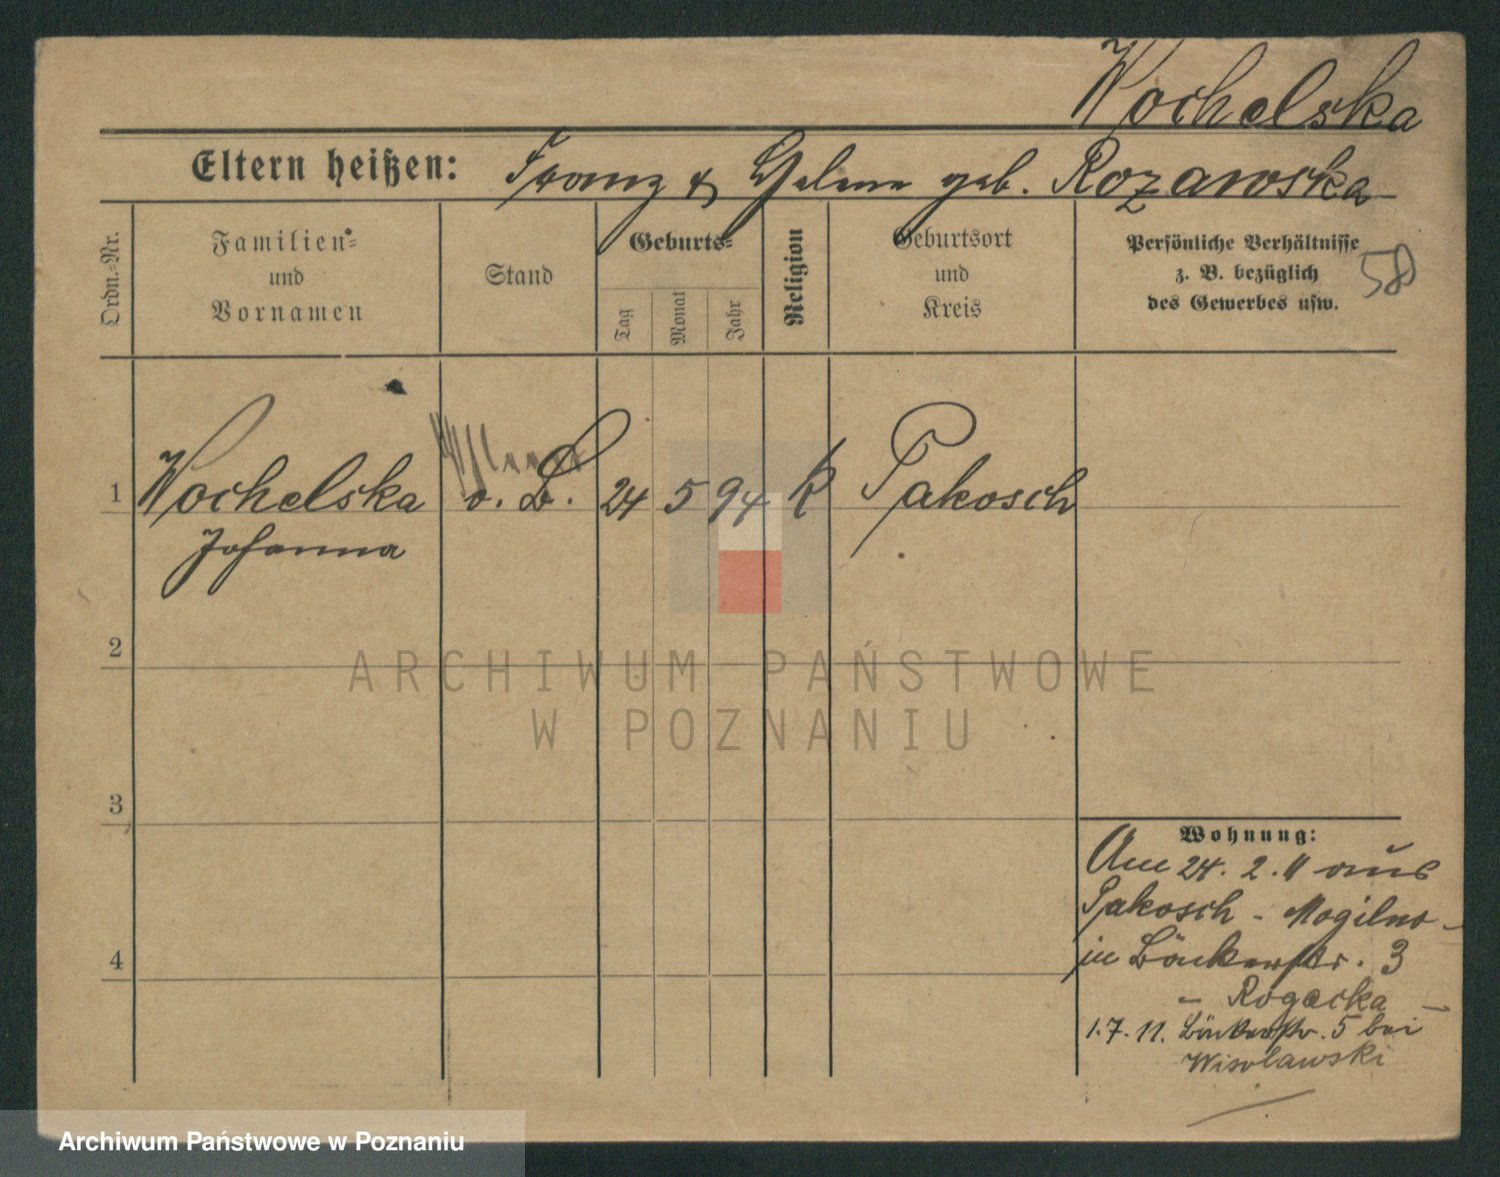 Wochelska
Eltern heißen: Franz & Helene geb. Rozawska
Ordn.-Nr.
Familien-
und
Vornamen
Stand
Geburts-
Tag
Monat
Jahr
Religion
Geburtsort
und
Kreis
Persönliche Verhältnisse
z. B. bezüglich
des Gewerbes usw.
58
1 Wochelska o. B. 24 5 94 K Pakosch
Johanna
2
3
4
Wohnung:
Am 24. 2. 11 aus
Pakosch - Mogilno -
in Bäckerstr. 3
- Rogacka -
1. 7. 11. Bäckerstr. 5 bei
Wisolawski
ARCHIWUM PAŃSTWOWE
W POZNANIU
Archiwum Państwowe w Poznaniu